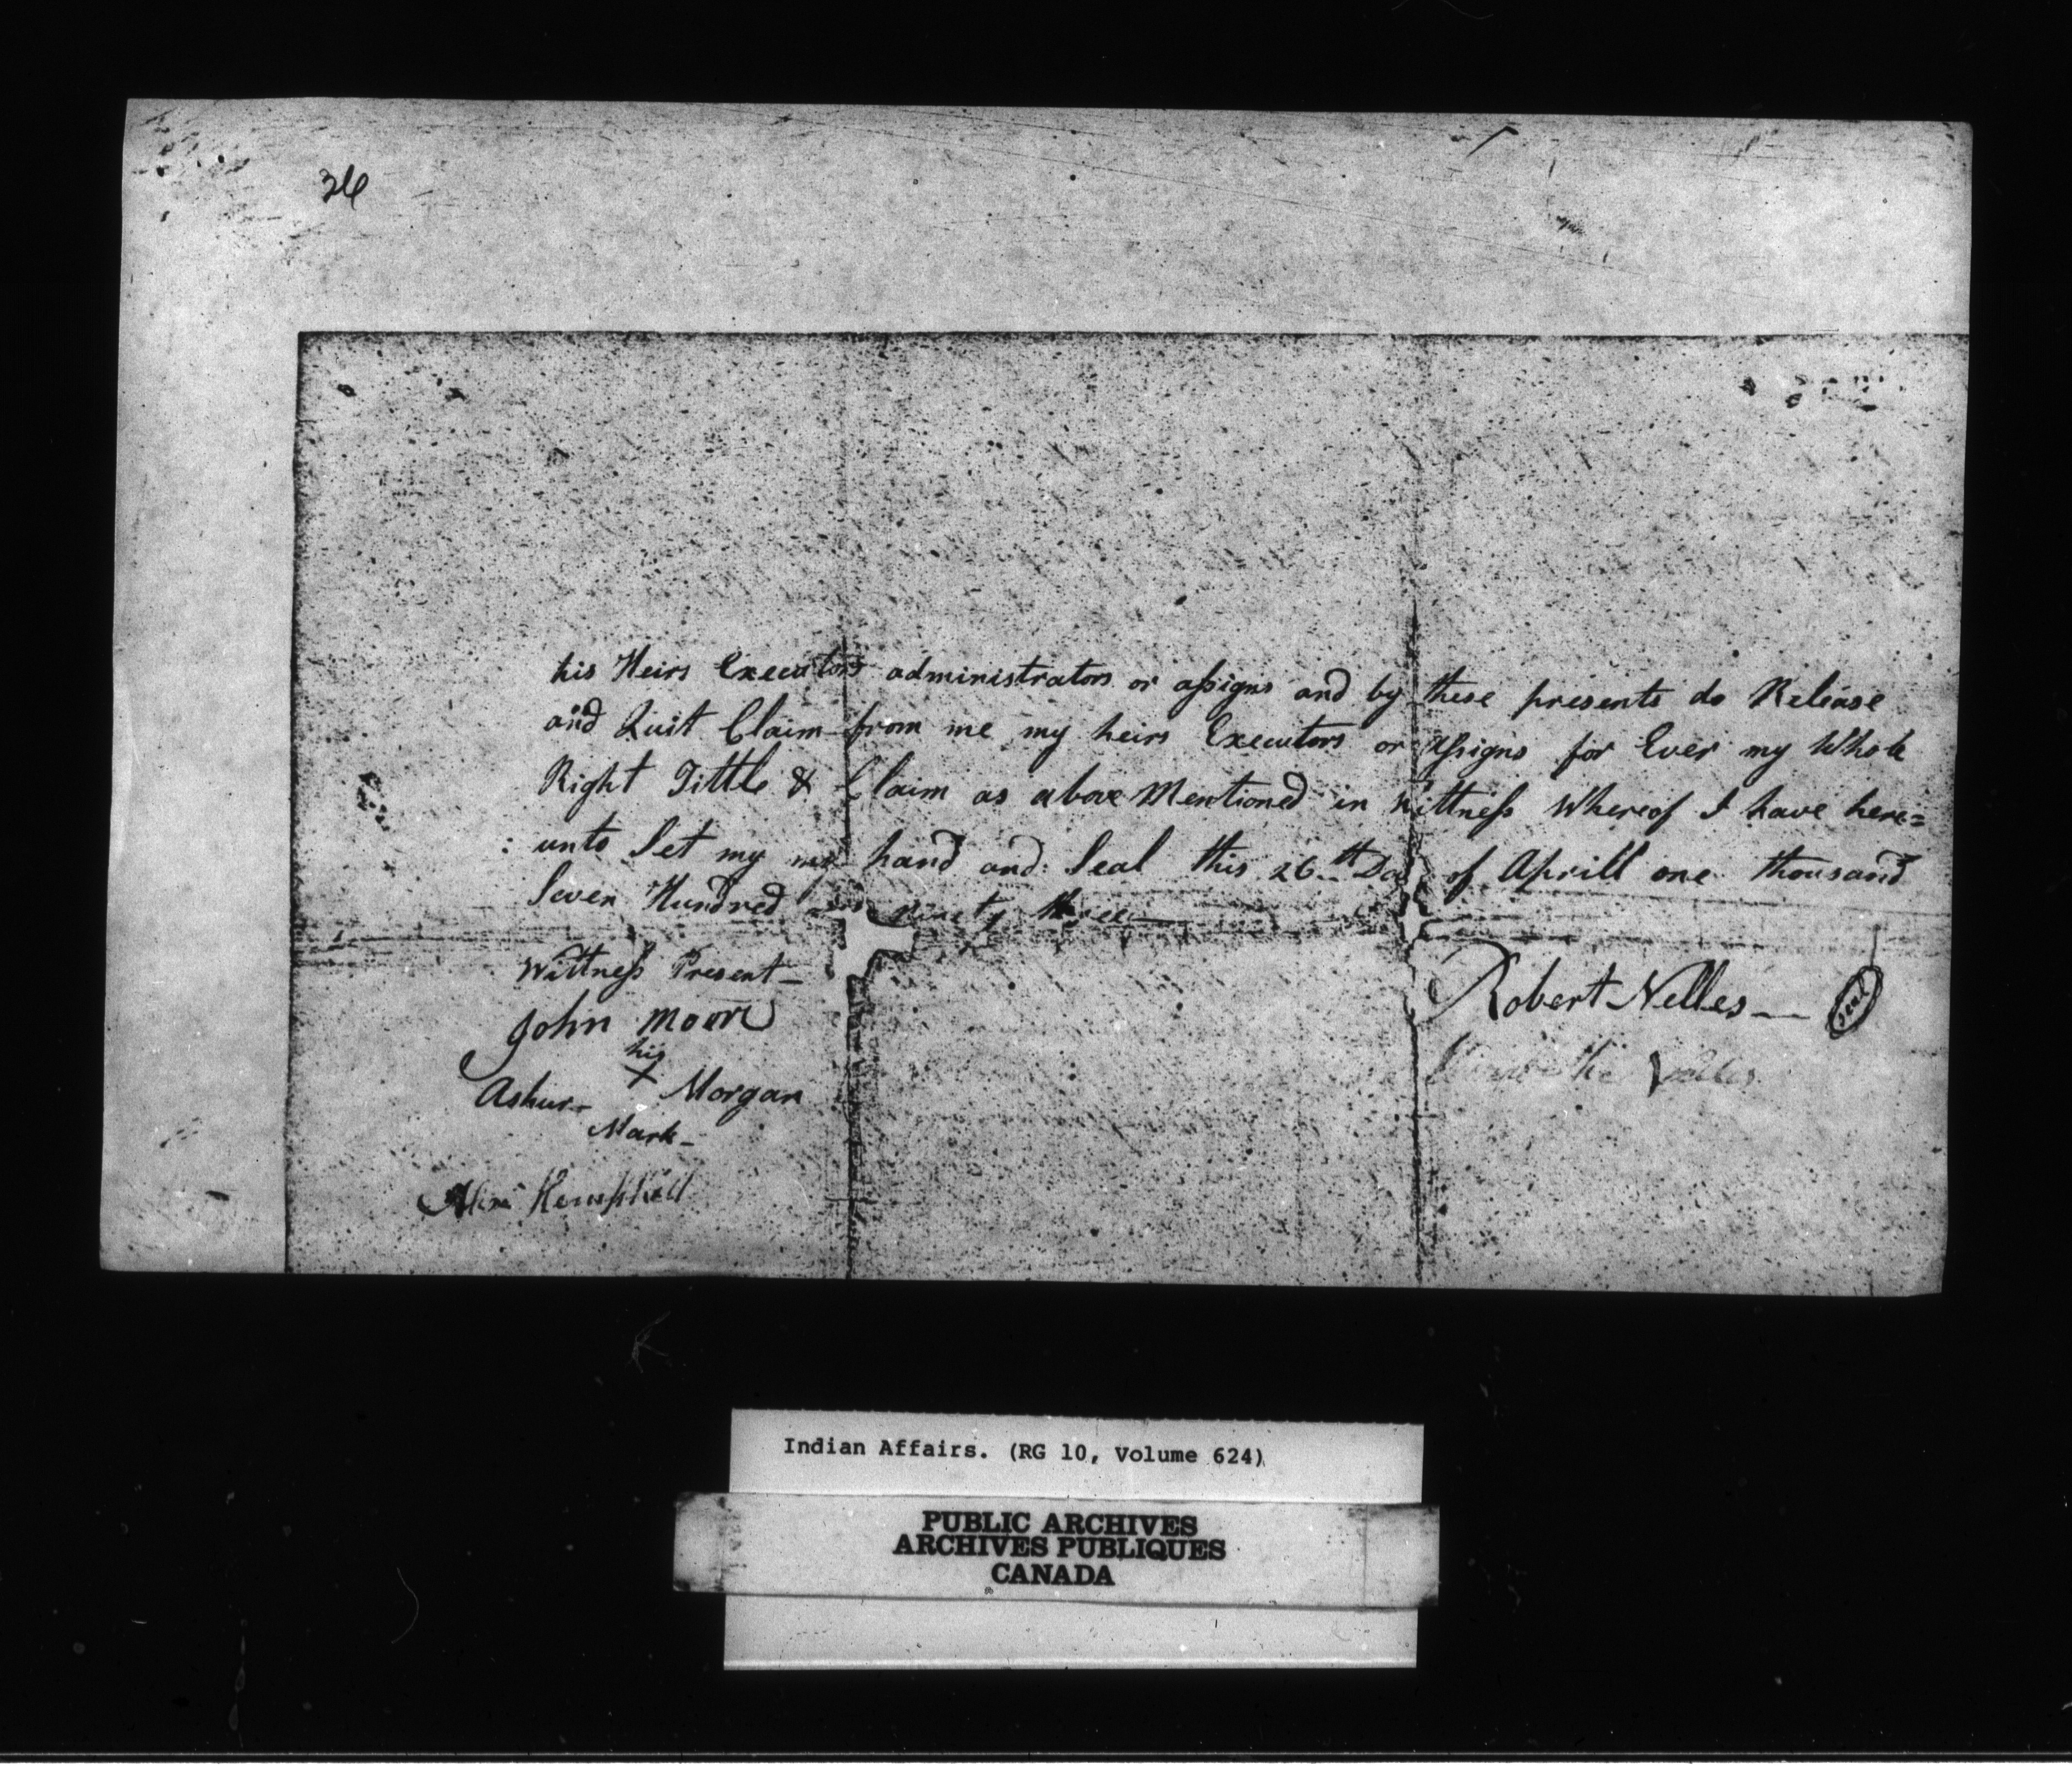 36
his Heirs Executors administrators or assigns and by these presents do Release
and Quit Claim from me my heirs Executors or assigns for Ever my Whole
Right Tittle & Claim as above Mentioned in Wittness Whereof I have here=
unto Set my my hand and Seal this 26th Day of Aprill one thousand
Seven Hundred and ninety three
Wittness Present
John Moore
his
Ashur X Morgan
Mark
Hemphill
Robert Nelles seal
Nelles
Indian Affairs. (RG 10, Volume 624)
PUBLIC ARCHIVES
ARCHIVES PUBLIQUES
CANADA